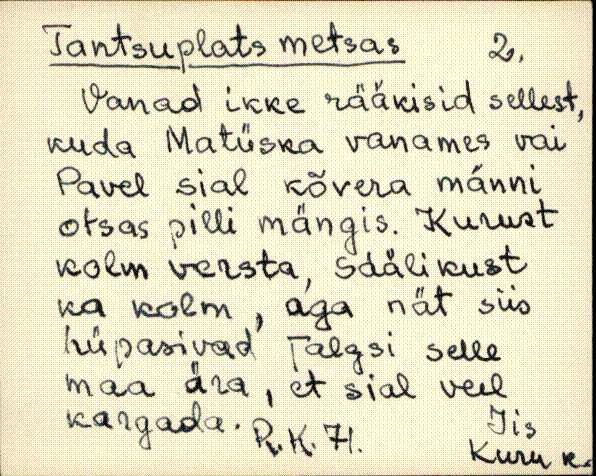 Tantsuplats metsas 2.
Vanad ikke rääkisid sellest,
kuda Matüska vanames vai
Pavel sial kõvera männi
otsas pilli mängis. Kurust
kolm versta, Sälikust
ka kolm, aga nät siis
hüpasivad jalgsi selle
maa ära, et sial veel
kargada. R.K. 71.
Iis
Kuru k.